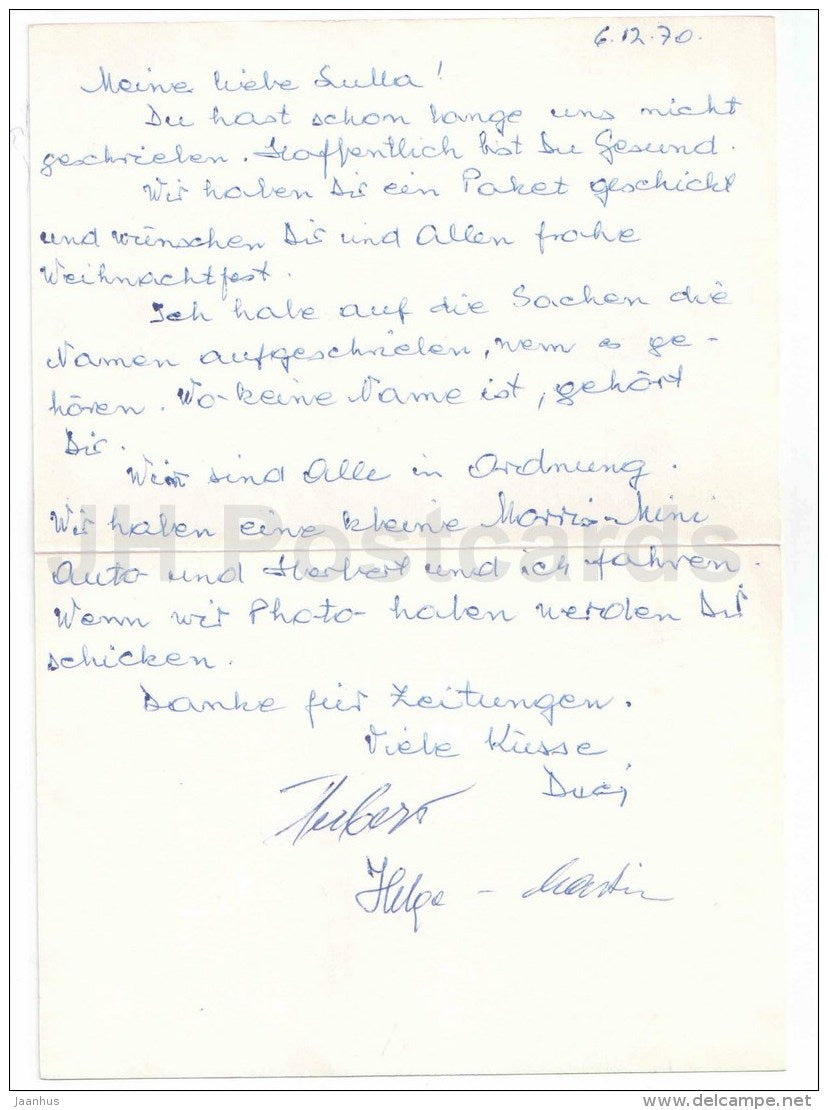 6.12.70.
Meine liebe Sulla!
Du hast schon lange uns nicht
geschrieben. Hoffentlich bist Du Gesund.
Wir haben Dir ein Paket geschickt
und wünschen Dir und Allen frohe
Weihnachtfest.
Ich habe auf die Sachen die
Namen aufgeschrieben, wem es ge-
hören. Wo keine Name ist, gehört
Dir.
Wir sind Alle in Ordnung.
Wir haben eine kleine Morris-Mini
Auto und Herbert und ich fahren.
Wenn wir Photo haben werden Dir
schicken.
Danke für Zeitungen.
Viele Küsse
Duci
Herbert
Helga - Martin
JH Postcards
Jaanhus
www.delcampe.net